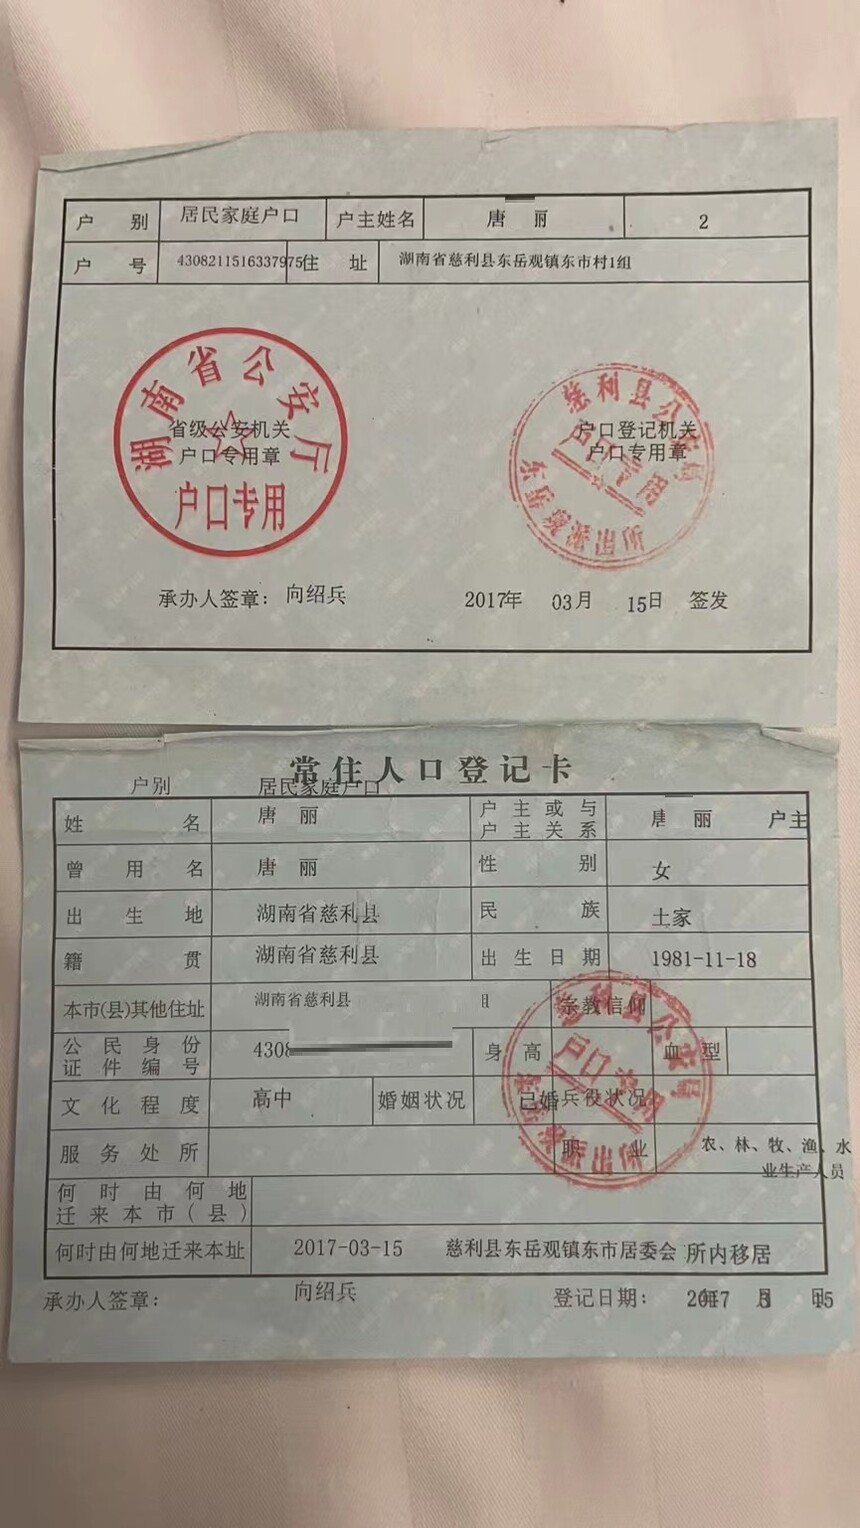 户别 居民家庭户口 户主姓名 唐 丽 2
户号 4308211516337975 住址 湖南省慈利县东岳观镇东市村1组
湖南省公安厅
户口专用
省级公安机关
户口专用章
慈利县公安局
户口专用
东岳观派出所
户口登记机关
户口专用章
承办人签章： 向绍兵 2017年 03月 15日 签发
常住人口登记卡
户别 居民家庭户口
姓名 唐 丽 户主或与户主关系 唐 丽 户主
曾用名 唐 丽 性别 女
出生地 湖南省慈利县 民族 土家
籍贯 湖南省慈利县 出生日期 1981-11-18
本市(县)其他住址 湖南省慈利县 宗教信仰
公民身份证件编号 4308 身高 血型
文化程度 高中 婚姻状况 已婚 兵役状况
服务处所 职业 农、林、牧、渔、水
业生产人员
慈利县公安局
户口专用
何时由何地迁来本市(县)
何时由何地迁来本址 2017-03-15 慈利县东岳观镇东市居委会 所内移居
承办人签章： 向绍兵 登记日期： 2017年 3月 15日